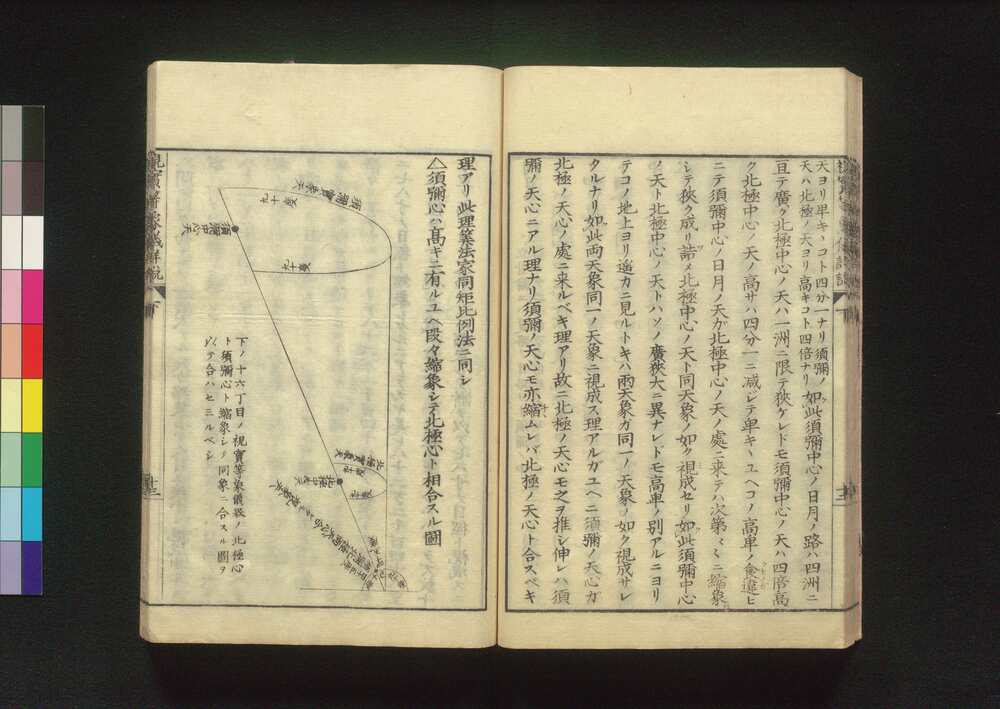 天ヨリ卑キヿ四分一ナリ須彌ノ
天ハ北極ノ天ヨリ高キコト四倍ナリ
如此須彌中心ノ日月ノ路ハ四洲ニ
亘テ廣ク北極中心ノ天ハ一洲ニ限テ狹ケレドモ須彌中心ノ天ハ四倍高
ク北極中心ノ天ノ高サハ四分一ニ减ジテ卑キユヘコノ高卑ノ食違ヒ
ニテ須彌中心ノ日月ノ天ガ北極中心ノ天ノ處ニ来テハ次第々々ニ縮象
シテ狹ク成リ詰メ北極中心ノ天ト同天象ノ如ク視成セリ如此須彌中心
ノ天ト北極中心ノ天トハソノ廣狹大ニ異ナレドモ高卑ノ別アルニヨリ
テコノ地上ヨリ遥カニ見ルトキハ兩天象ガ同一ノ天象ノ如ク視成サレ
タルナリ如此兩天象同一ノ天象ニ視成ス理アルガユヘニ須彌ノ天心ガ
北極ノ天心ノ處ニ来ルベキ理アリ故ニ北極ノ天心モ之ヲ推シ伸レハ須
彌ノ天心ニアル理ナリ須彌ノ天心モ亦縮ムレバ北極ノ天心ト合スベキ
理アリ此理筭法家同矩比例法ニ同シ
△須彌心ハ髙キニ有ルユヘ段々縮象シテ北極心ト相合スル圖
須彌實象天
九十度
九十度
須彌中心天
北極實象天
北極中心天
下ノ十六丁目ノ視實等象儀畧ノ北極心
ト須彌心ト縮象シテ同象ニ合スル圖ヲ
以テ合ハセミルベシ
視實等象儀詳說
下
十三